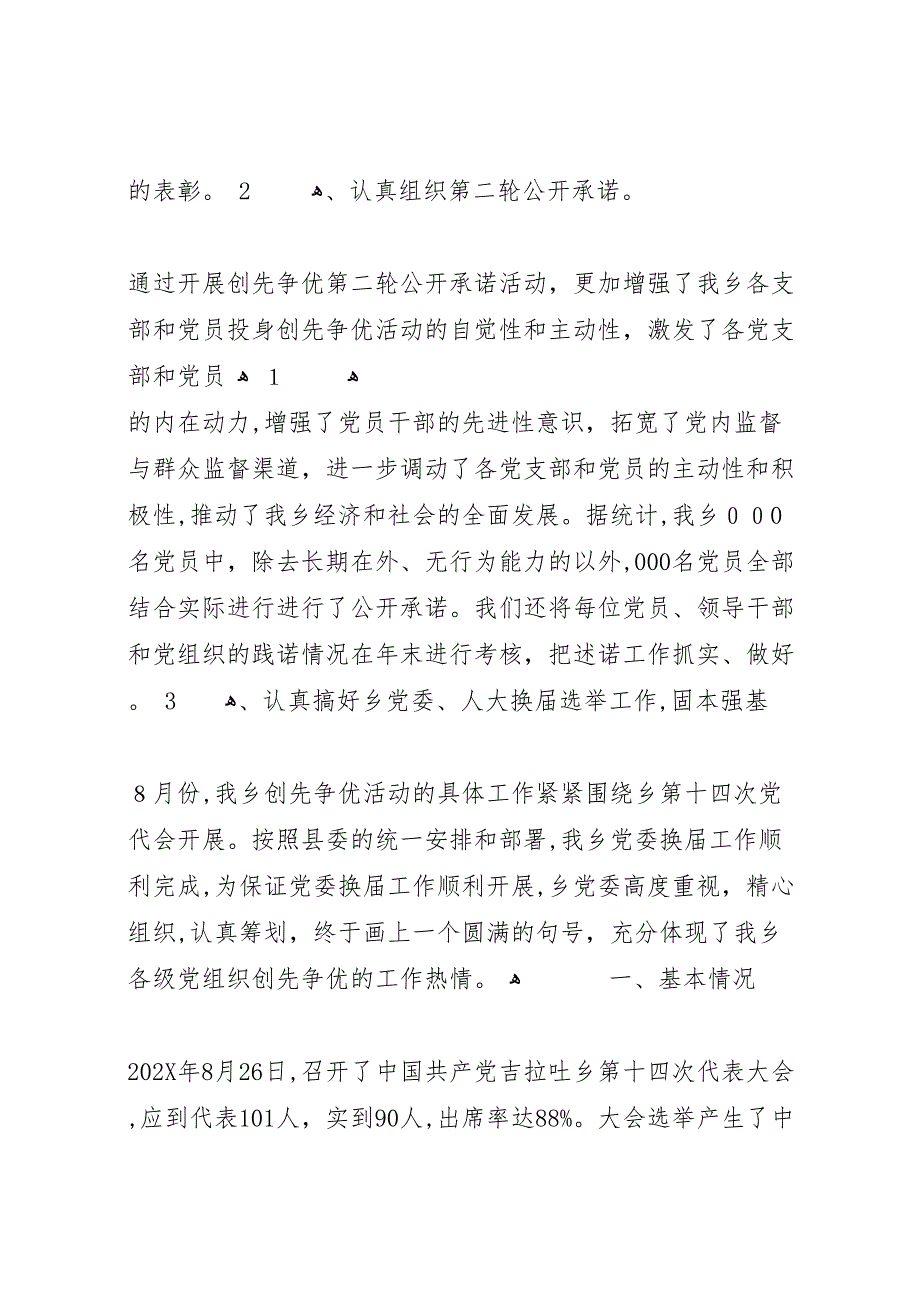 的表彰。 2 ﻫ、认真组织第二轮公开承诺。
通过开展创先争优第二轮公开承诺活动，更加增强了我乡各支
部和党员投身创先争优活动的自觉性和主动性，激发了各党支
部和党员 ﻫ 1 ﻫ
的内在动力,增强了党员干部的先进性意识，拓宽了党内监督
与群众监督渠道，进一步调动了各党支部和党员的主动性和积
极性,推动了我乡经济和社会的全面发展。据统计,我乡０００
名党员中，除去长期在外、无行为能力的以外,000名党员全部
结合实际进行进行了公开承诺。我们还将每位党员、领导干部
和党组织的践诺情况在年末进行考核，把述诺工作抓实、做好
。 3 ﻫ、认真搞好乡党委、人大换届选举工作,固本强基
８月份,我乡创先争优活动的具体工作紧紧围绕乡第十四次党
代会开展。按照县委的统一安排和部署,我乡党委换届工作顺
利完成,为保证党委换届工作顺利开展,乡党委高度重视，精心
组织,认真筹划，终于画上一个圆满的句号，充分体现了我乡
各级党组织创先争优的工作热情。 ﻫ 一、基本情况
202X年8月26日,召开了中国共产党吉拉吐乡第十四次代表大会
,应到代表101人，实到90人,出席率达88%。大会选举产生了中